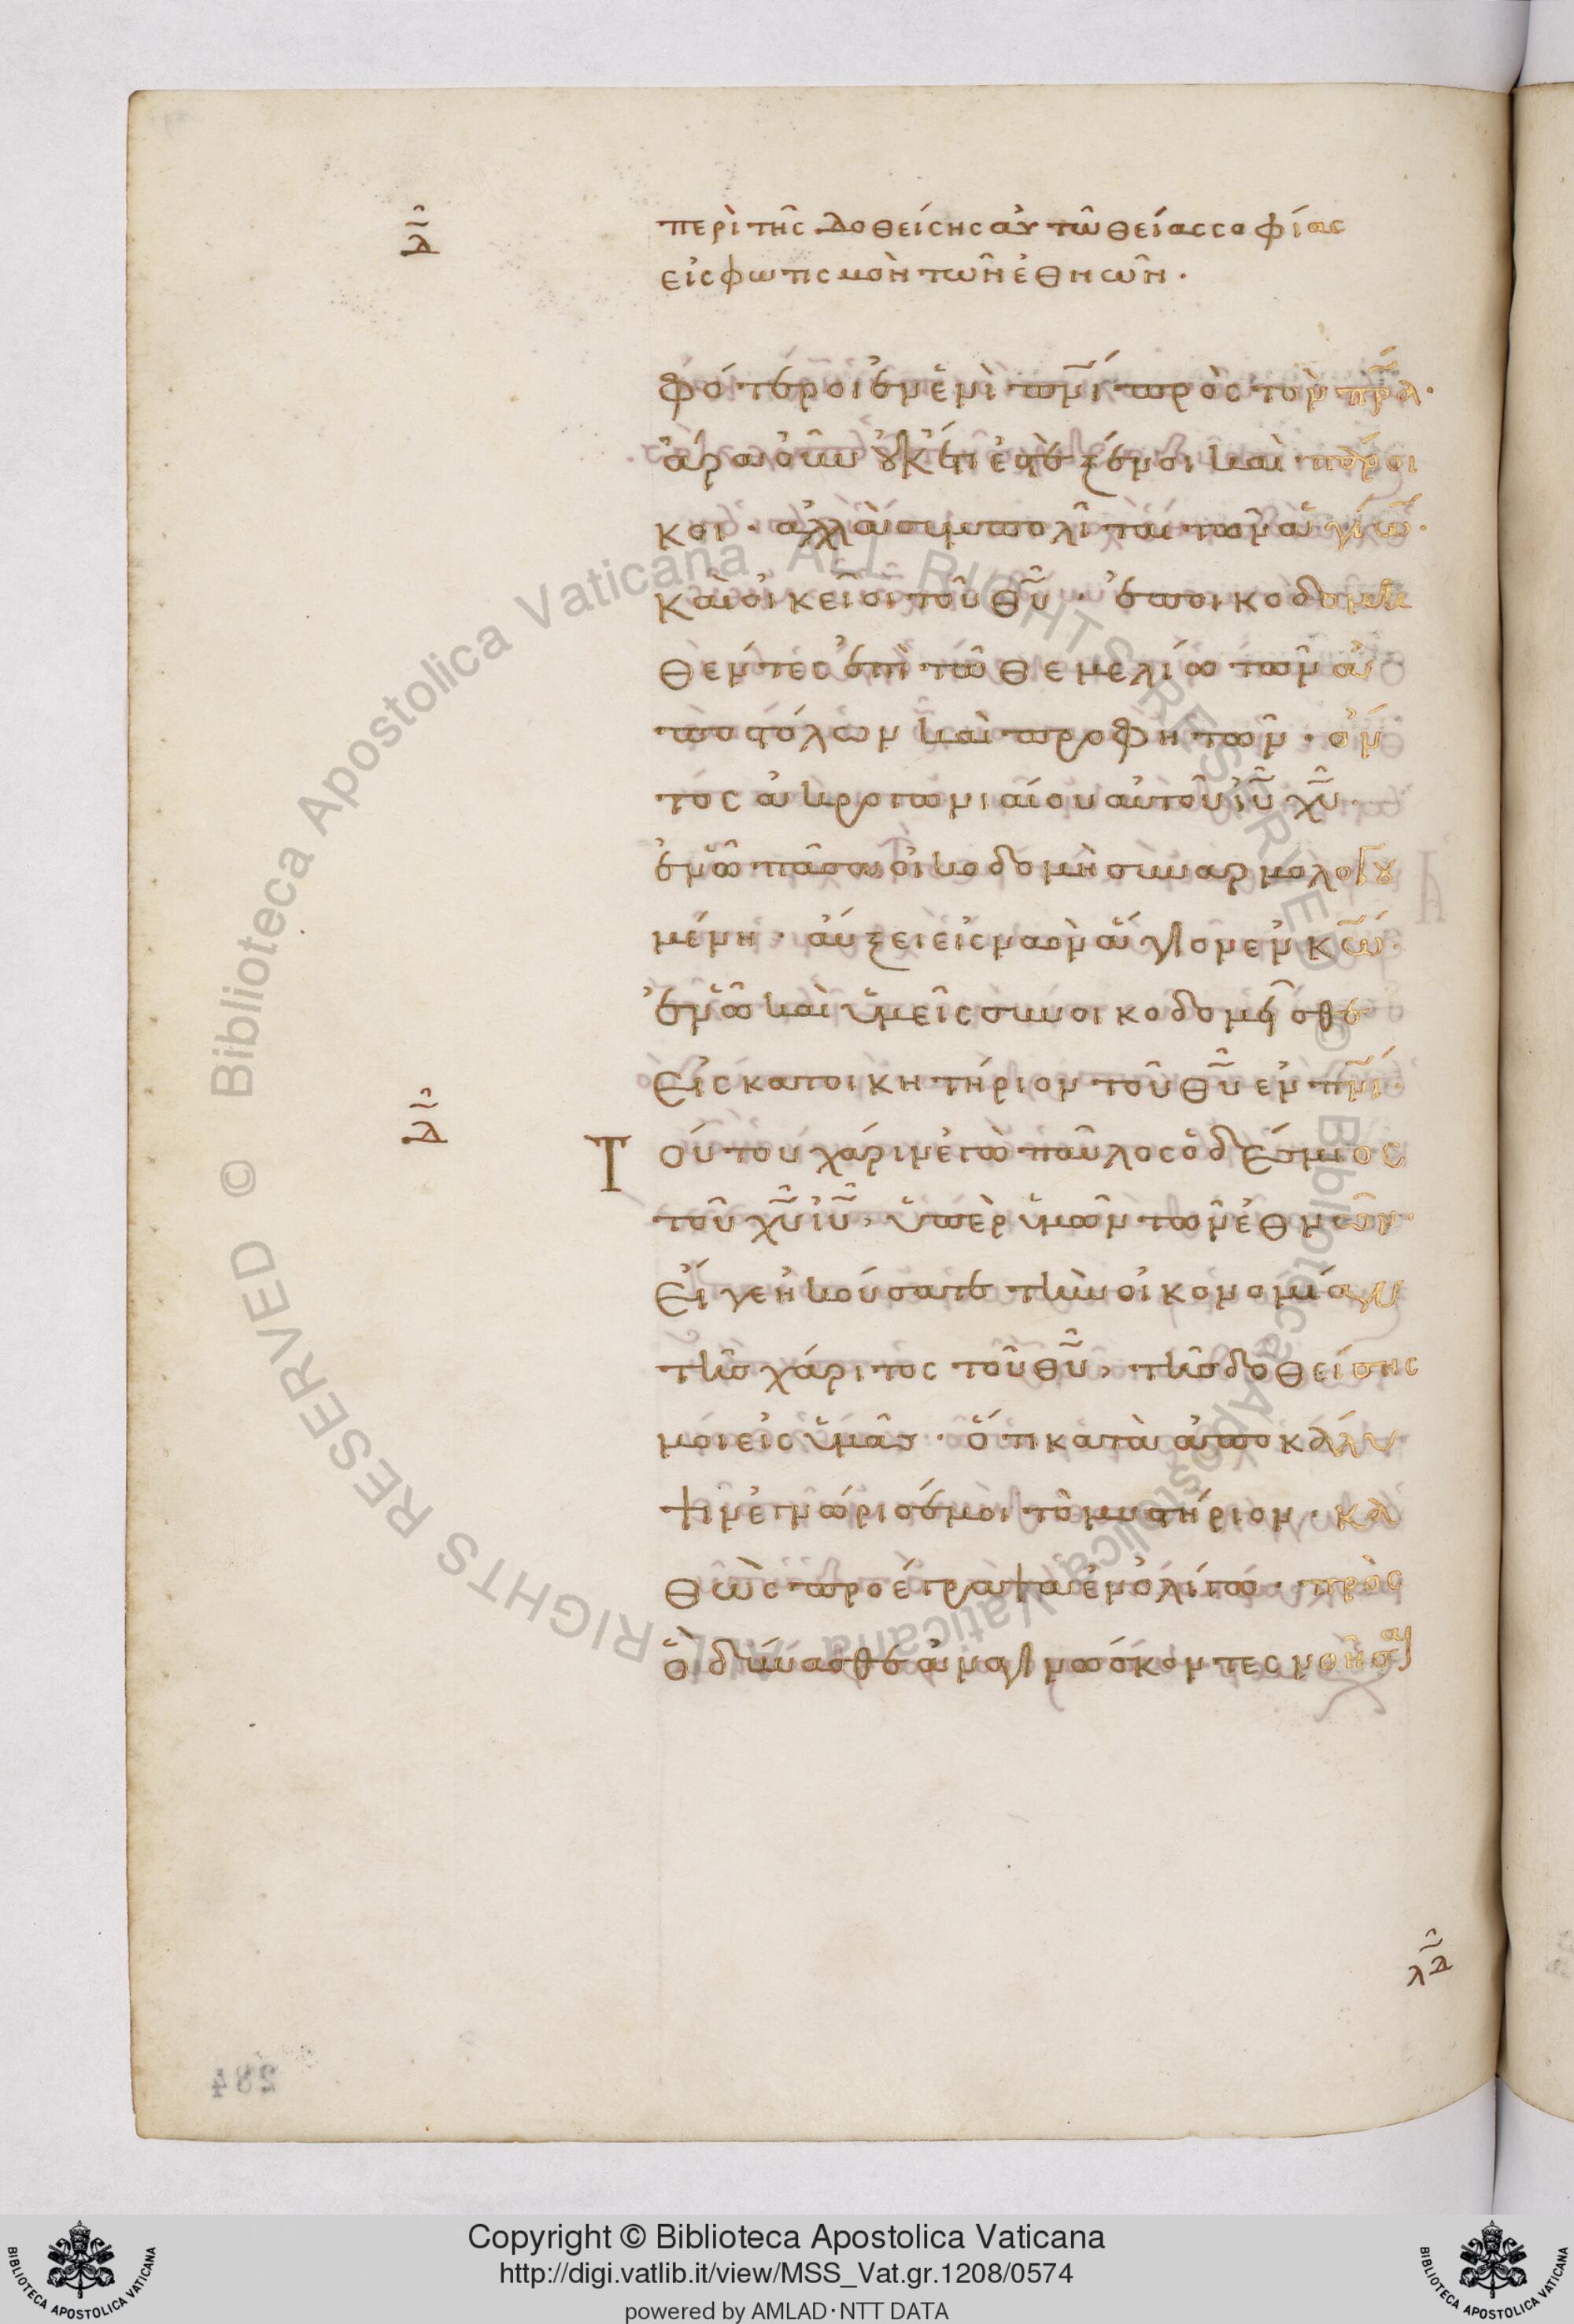 δ
περὶ τῆς δοθείσης αὐτῶ θείας σοφίας
εἰς φωτισμὸν τῶν ἐθνῶν·
φότεροι ἐν ἑνὶ πνί πρὸς τὸν πρα·
ἄρα οὖν οὐκέτι ἐστὲ ξένοι καὶ πάροι
κοι· ἀλλὰ συμπολῖται τῶν ἁγίων·
καὶ οἰκεῖοι τοῦ θυ· ἐποικοδομη
θέντες ἐπὶ τῶ θεμελίω τῶν ἀ
ποστόλων καὶ προφητῶν· ὄν
τος ἀκρογωνιαίου αὐτοῦ ιυ χυ·
ἐν ὧ πᾶσα οἰκοδομὴ συναρμολογου
μένη· αὔξει εἰς ναὸν ἅγιον ἐν κω·
ἐν ὧ καὶ ὑμεῖς συνοικοδομεῖσθε
εἰς κατοικητήριον τοῦ θυ ἐν πνι·
δ
Τούτου χάριν ἐγὼ παῦλος ὁ δέσμιος
τοῦ χυ ιυ, ὑπὲρ ὑμῶν τῶν ἐθνῶν·
Εἴγε ἠκούσατε τὴν οἰκονομίαν
τῆς χάριτος τοῦ θυ, τῆς δοθείσης
μοι εἰς ὑμᾶς· ὅτι κατὰ ἀποκάλυ
ψιν ἐγνώρισέ μοι τὸ μυστήριον· κα
θὼς προέγραψα ἐν ὀλίγω· πρὸς
ὃ δύνασθε ἀναγινώσκοντες νοῆσαι
λδ
284
© Biblioteca Apostolica Vaticana ALL RIGHTS RESERVED © Biblioteca Apostolica Vaticana ALL RIGHTS RESERVED
Copyright © Biblioteca Apostolica Vaticana
http://digi.vatlib.it/view/MSS_Vat.gr.1208/0574
powered by AMLAD·NTT DATA
BIBLIOTECA APOSTOLICA VATICANA
BIBLIOTECA APOSTOLICA VATICANA